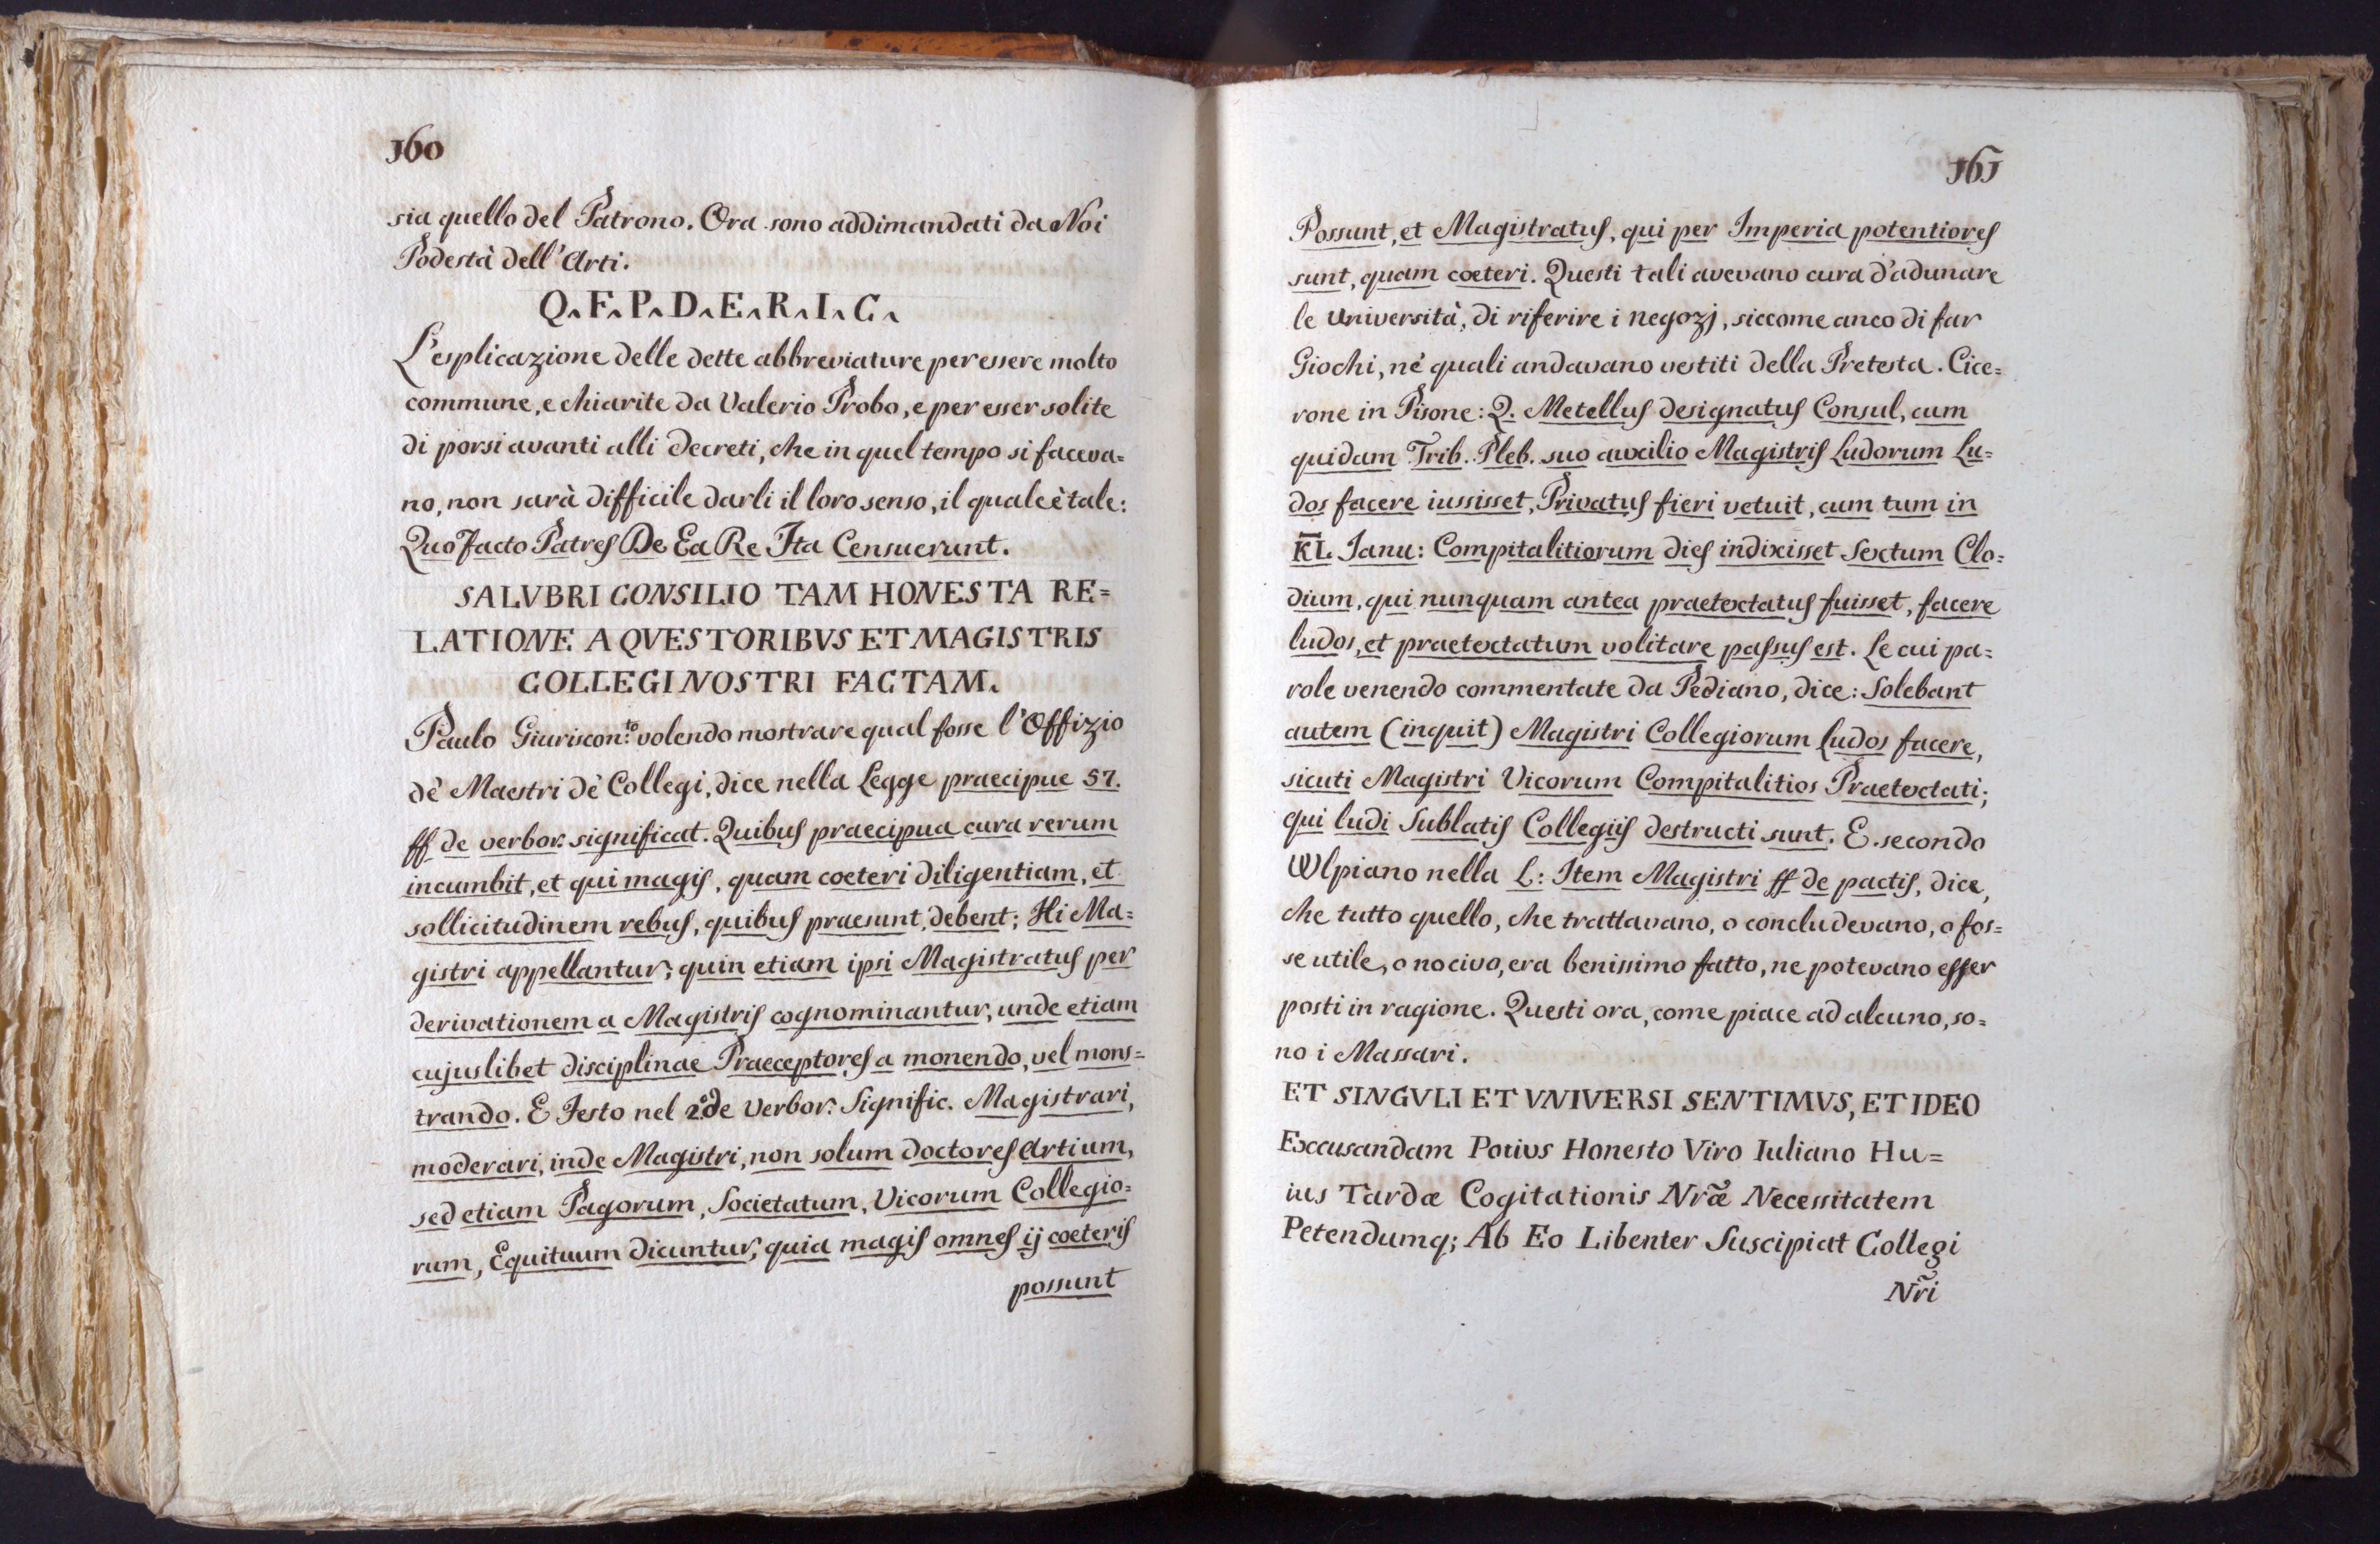 160
sia quello del Patrono. Ora sono addimandati da Noi
Podestà dell'Arti.
Q. F. P. D. E. R. I. C.
L'esplicazione delle dette abbreviature per essere molto
commune, e chiarite da Valerio Probo, e per esser solite
di porsi avanti alli Decreti, che in quel tempo si faceva=
no, non sarà difficile darli il loro senso, il quale è tale:
Quo Facto Patres De Ea Re Ita Censuerunt.
SALVBRI CONSILIO TAM HONESTA RE=
LATIONE A QVESTORIBVS ET MAGISTRIS
COLLEGI NOSTRI FACTAM.
Paulo Giuriscon.to volendo mostrare qual fosse l'Offizio
dè Maestri dè Collegi, dice nella Legge praecipue 57.
ff de verbor. significat. Quibus praecipua cura rerum
incumbit, et qui magis, quam coeteri diligentiam, et
sollicitudinem rebus, quibus praesunt, debent; Hi Ma=
gistri appellantur; quin etiam ipsi Magistratus per
derivationem a Magistris cognominantur, unde etiam
cujuslibet disciplinae Praeceptores a monendo, vel mons=
trando. E Festo nel 2.o de Verbor: Signific. Magistrari,
moderari, inde Magistri, non solum doctores Artium,
sed etiam Pagorum, Societatum, Vicorum Collegio=
rum, Equituum dicuntur, quia magis omnes ij coeteris
possunt
161
Possunt, et Magistratus, qui per Imperia potentiores
sunt, quam coeteri. Questi tali avevano cura d'adunare
le Università, di riferire i negozj, siccome anco di far
Giochi, nè quali andavano vestiti della Pretesta. Cice=
rone in Pisone: Q. Metellus designatus Consul, cum
quidam Trib. Pleb. suo auxilio Magistris Ludorum Lu=
dos facere iussisset, Privatus fieri vetuit, cum tum in
K̅L̅. Janu: Compitalitiorum dies indixisset Sextum Clo=
dium, qui nunquam antea praetextatus fuisset, facere
ludos, et praetextatum volitare passus est. Le cui pa=
role venendo commentate da Pediano, dice: Solebant
autem (inquit) Magistri Collegiorum Ludos facere,
sicuti Magistri Vicorum Compitalitios Praetextati;
qui ludi Sublatis Collegiis destructi sunt. E. secondo
Ulpiano nella L: Item Magistri ff de pactis, dice,
che tutto quello, che trattavano, o concludevano, o fos=
se utile, o nocivo, era benissimo fatto, ne potevano esser
posti in ragione. Questi ora, come piace ad alcuno, so=
no i Massari.
ET SINGVLI ET VNIVERSI SENTIMVS, ET IDEO
Excusandam Potius Honesto Viro Iuliano Hu=
ius Tardæ Cogitationis Nr̃æ Necessitatem
Petendumq; Ab Eo Libenter Suscipiat Collegi
Nr̃i